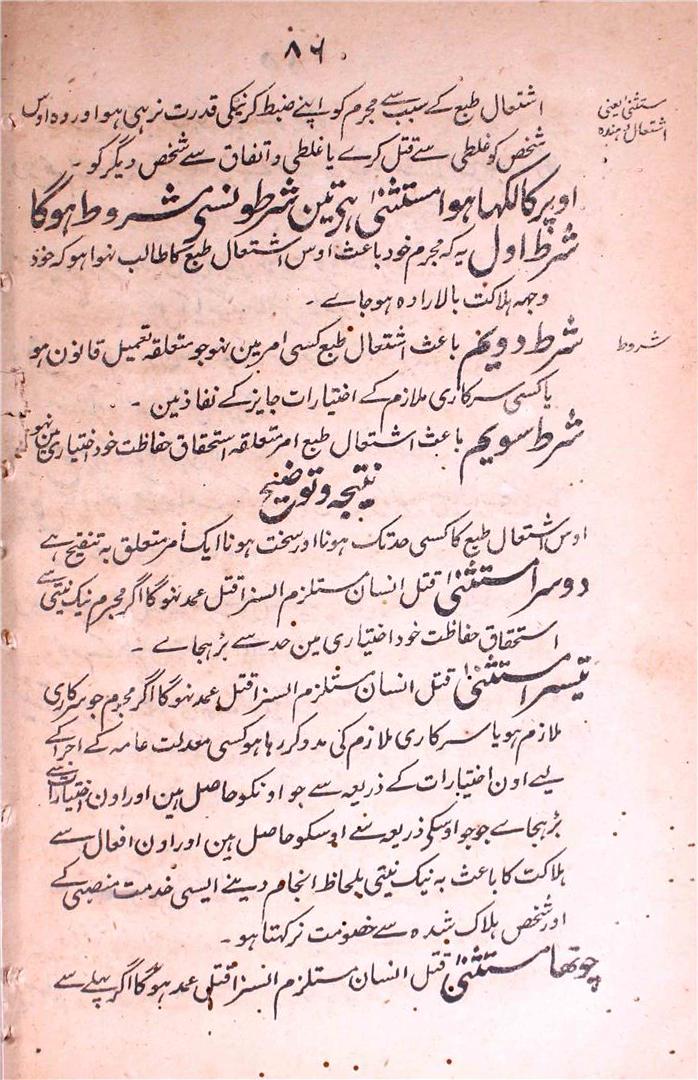 ۸۶
اشتعال طبع کے سبب سے مجرم کو اپنے ضبط کرنیکی قدرت نرہی ہو اور وہ اوس
مستثنیٰ یعنی
اشتعال دہندہ
شخص کو غلطی سے قتل کرے یا غلطی و اتفاق سے شخص دیگر کو ۔
اوپر کا لکھا ہوا مستثنیٰ ہی تین شرطونسے مشروط ہوگا
شرط اول یہ کہ مجرم خود باعث اوس اشتعال طبع کا طالب نہوا ہو کہ خود
وجہہ ہلاکت بالارادہ ہو جاے ۔
شرط دویم باعث اشتعال طبع کسی امر مین نہو جو متعلقہ تعمیل قانون ہو
شروط
یا کسی سرکاری ملازم کے اختیارات جایز کے نفاذ مین ۔
شرط سویم باعث اشتعال طبع امر متعلقہ استحقاق حفاظت خود اختیاری مین نہو
نتیجہ و توضیح
اوس اشتعال طبع کا کسی حد تک ہونا اور سخت ہونا ایک امر متعلق بہ تنقیح ہے
دوسرا مستثنیٰ قتل انسان مستلزم السزا قتل عمد نہوگا اگر مجرم نیک نیتی سے
استحقاق حفاظت خود اختیاری مین حد سے بڑہجاے ۔
تیسرا مستثنیٰ قتل انسان مستلزم السزا قتل عمد نہوگا اگر مجرم جو سرکاری
ملازم ہو یا سرکاری ملازم کی مدد کر رہا ہو کسی معدلت عامہ کے اجرا کے
لیے اون اختیارات کے ذریعہ سے جو اونکو حاصل ہین اور اون اختیارات سے
بڑہجاے جو جو اوسکی ذریعہ سے اوسکو حاصل ہین اور اون افعال سے
ہلاکت کا باعث بہ نیک نیتی بلحاظ انجام دینے ایسی خدمت منصبی کے
اور شخص ہلاک شدہ سے خصومت نرکہتا ہو ۔
چوتھا مستثنیٰ قتل انسان مستلزم السزا قتل عمد ہوگا اگر پہلے سے